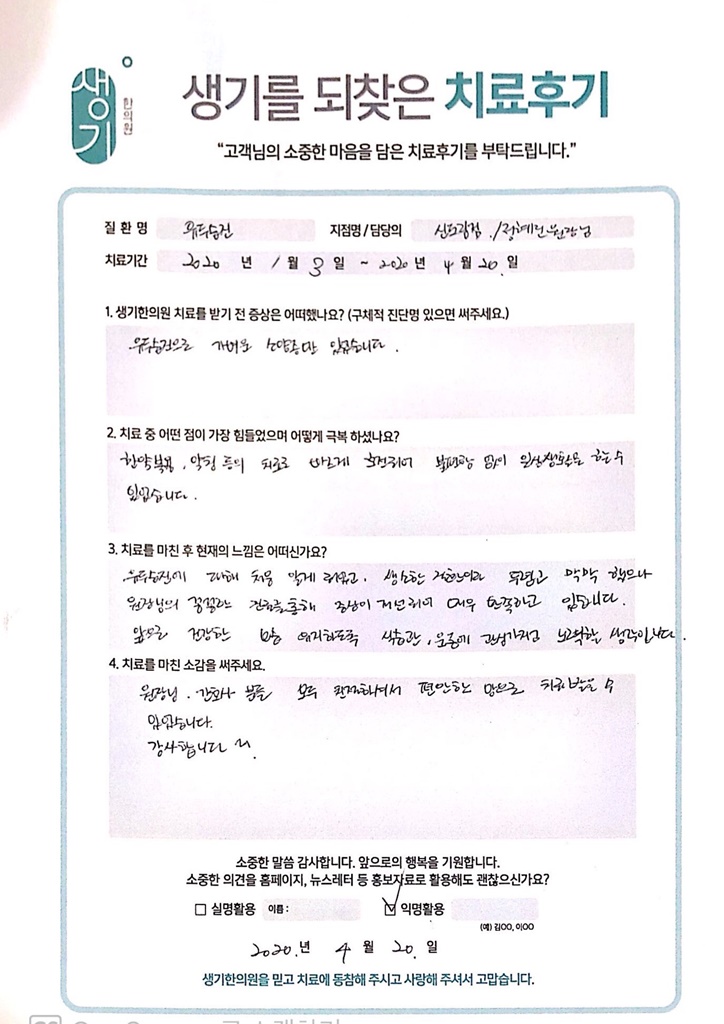 생기
한의원
생기를 되찾은 치료후기
“고객님의 소중한 마음을 담은 치료후기를 부탁드립니다.”
질 환 명 유두습진 지점명/담당의 신도림점 /정혜민원장님
치료기간 2020 년 1 월 3 일 ~ 2020 년 4 월 20. 일
1. 생기한의원 치료를 받기 전 증상은 어떠했나요? (구체적 진단명 있으면 써주세요.)
유두습진으로 가벼운 소양증만 있었습니다.
2. 치료 중 어떤 점이 가장 힘들었으며 어떻게 극복 하셨나요?
한약복용, 약침 등의 치료로 빠르게 호전되어 불편함 없이 일상생활을 할 수
있었습니다.
3. 치료를 마친 후 현재의 느낌은 어떠신가요?
유두습진에 대해 처음 알게 되었고, 생소한 질환이라 두렵고 막막 했으나
원장님의 꼼꼼한 진료를통해 증상이 개선되어 매우 만족하고 있습니다.
앞으로 건강한 몸을 유지하도록 식습관, 운동에 관심가지고 노력할 생각입니다.
4. 치료를 마친 소감을 써주세요.
원장님, 간호사 분들 모두 친절하셔서 편안한 맘으로 치료 받을 수
있었습니다.
감사합니다 ~.
소중한 말씀 감사합니다. 앞으로의 행복을 기원합니다.
소중한 의견을 홈페이지, 뉴스레터 등 홍보자료로 활용해도 괜찮으신가요?
□ 실명활용 이름: ☑ 익명활용
(예) 김OO, 이OO
2020. 년 4 월 20. 일
생기한의원을 믿고 치료에 동참해 주시고 사랑해 주셔서 고맙습니다.